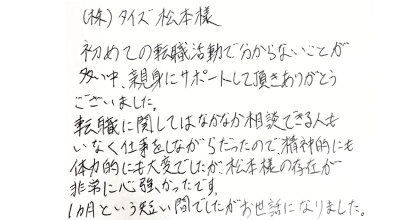 (株)タイズ 松本様
初めての転職活動で分からないことが
多い中、親身にサポートして頂きありがとう
ございました。
転職に関してはなかなか相談できる人も
いなく仕事をしながらだったので、精神的にも
体力的にも大変でしたが、松本様の存在が
非常に心強かったです。
1ヵ月という短い間でしたがお世話になりました。